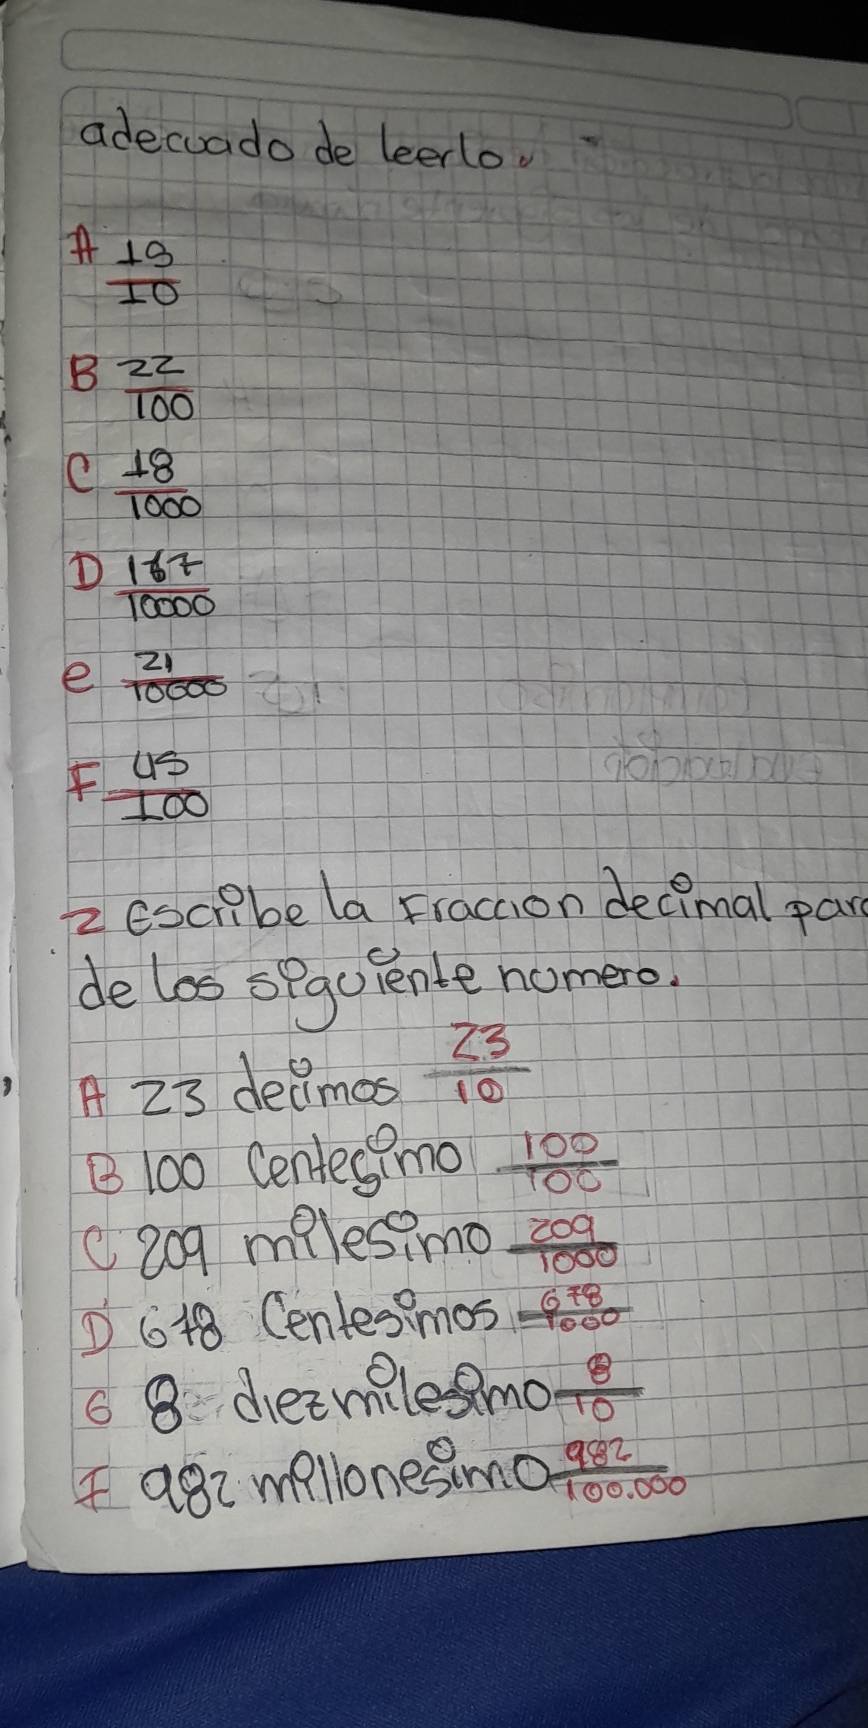 adecuado de leerlo.
A 19/10
B 22/100
C 18/1000
D 167/10000
e 21/10000
F 45/100
2 Escribe la Fraccion decimal para
de los siguiente numero.
A 23 decimos 23/10
B 100 Centesimo 100/100
C 209 milesimo 209/1000
D 678 Centesimos 678/1000
E 8 diezmilesimo 8/10
F 982 millonesimo 982/100.000